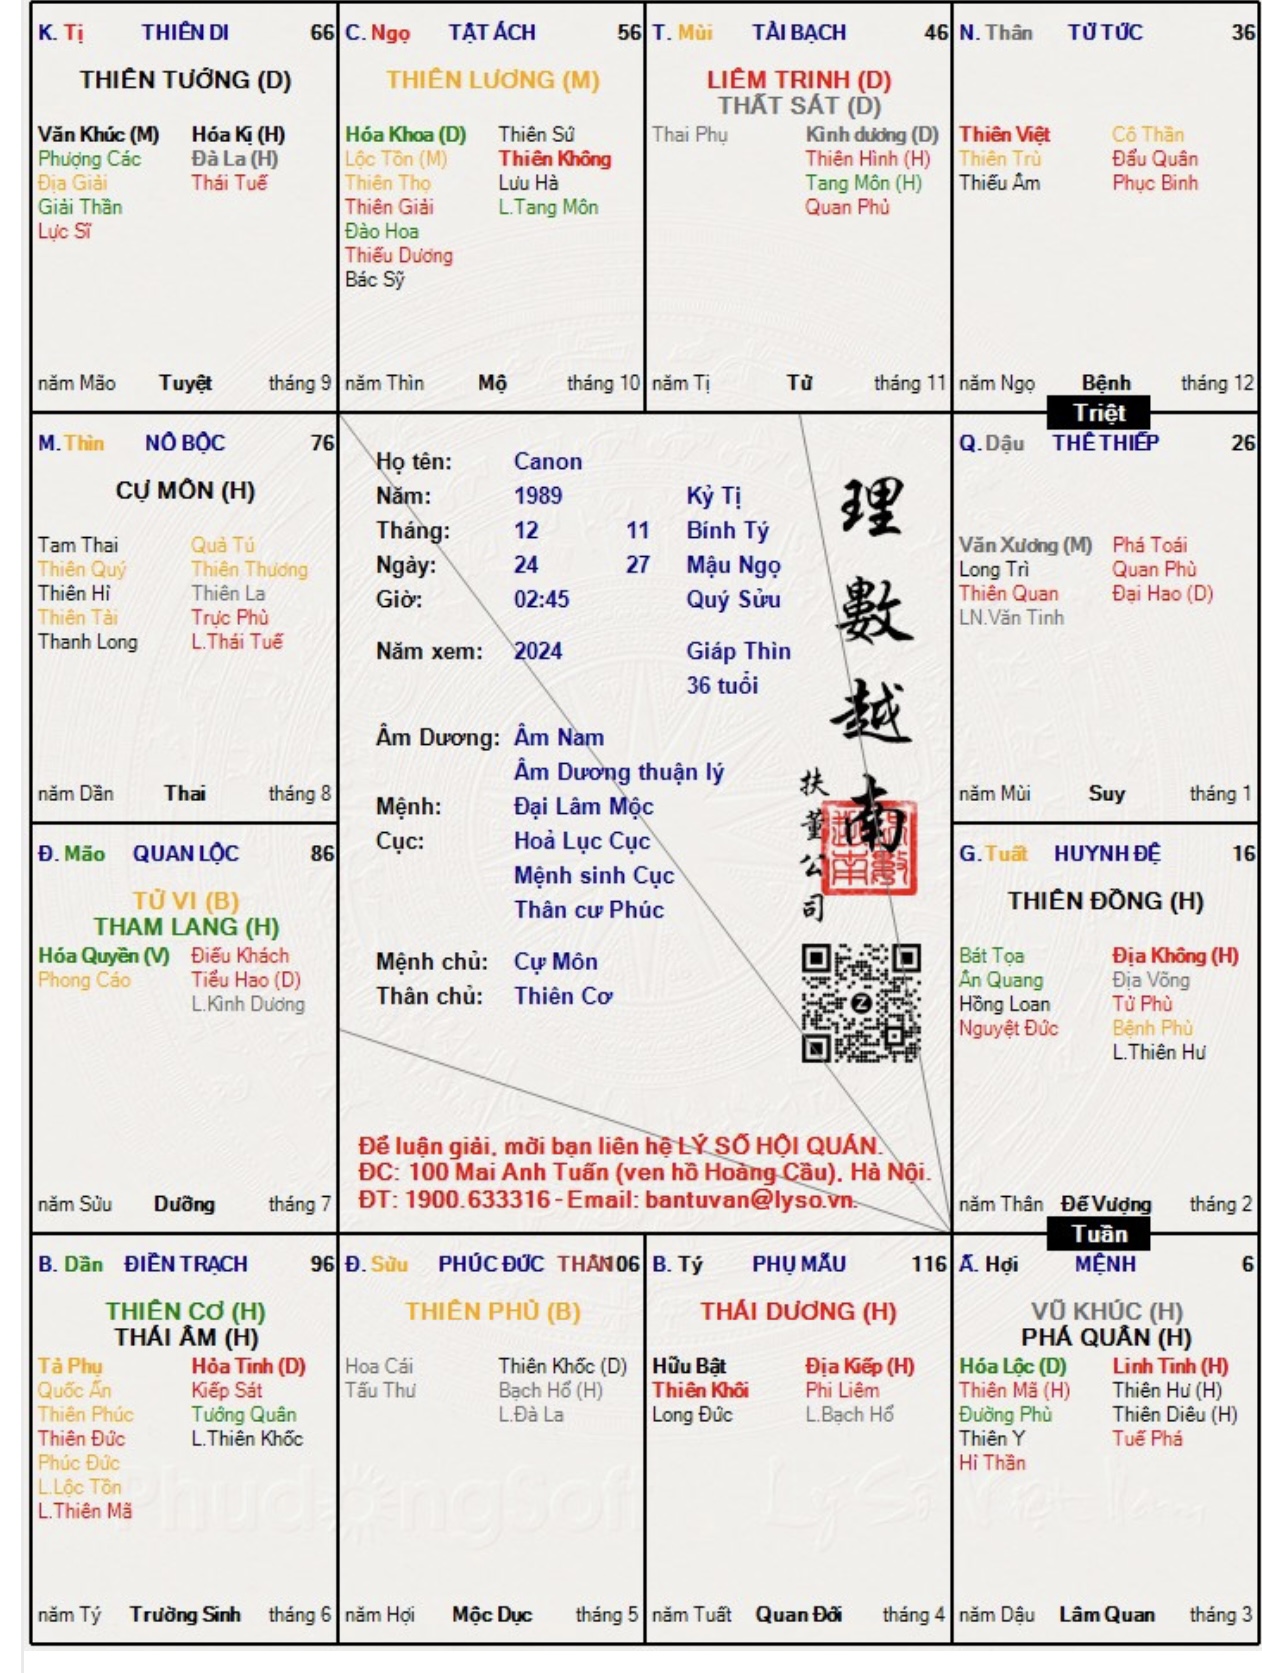 K. Tị THIÊN DI 66
THIÊN TƯỚNG (Đ)
Văn Khúc (M) Hóa Kị (H)
Phượng Các Đà La (H)
Địa Giải Thái Tuế
Giải Thần
Lực Sĩ
năm Mão Tuyệt tháng 9
C. Ngọ TẬT ÁCH 56
THIÊN LƯƠNG (M)
Hóa Khoa (D) Thiên Sứ
Lộc Tồn (M) Thiên Không
Thiên Thọ Lưu Hà
Thiên Giải L.Tang Môn
Đào Hoa
Thiếu Dương
Bác Sỹ
năm Thìn Mộ tháng 10
T. Mùi TÀI BẠCH 46
LIÊM TRINH (D)
THẤT SÁT (D)
Thai Phụ Kình dương (D)
Thiên Hình (H)
Tang Môn (H)
Quan Phủ
năm Tị Tử tháng 11
N. Thân TỬ TỨC 36
Thiên Việt Cô Thần
Thiên Trù Đẩu Quân
Thiếu Âm Phục Binh
năm Ngọ Bệnh tháng 12
Triệt
M. Thìn NÔ BỘC 76
CỰ MÔN (H)
Tam Thai Quả Tú
Thiên Quý Thiên Thương
Thiên Hỉ Thiên La
Thiên Tài Trực Phù
Thanh Long L.Thái Tuế
năm Dần Thai tháng 8
Họ tên: Canon
Năm: 1989 Kỷ Tị
Tháng: 12 11 Bính Tý
Ngày: 24 27 Mậu Ngọ
Giờ: 02:45 Quý Sửu
Năm xem: 2024 Giáp Thìn
36 tuổi
Âm Dương: Âm Nam
Âm Dương thuận lý
Mệnh: Đại Lâm Mộc
Cục: Hoả Lục Cục
Mệnh sinh Cục
Thân cư Phúc
Mệnh chủ: Cự Môn
Thân chủ: Thiên Cơ
理數越南
扶董公司
Để luận giải, mời bạn liên hệ LÝ SỐ HỘI QUÁN.
ĐC: 100 Mai Anh Tuấn (ven hồ Hoàng Cầu), Hà Nội.
ĐT: 1900.633316 - Email: bantuvan@lyso.vn.
Q. Dậu THÊ THIẾP 26
Văn Xương (M) Phá Toái
Long Trì Quan Phù
Thiên Quan Đại Hao (D)
LN.Văn Tinh
năm Mùi Suy tháng 1
Đ. Mão QUAN LỘC 86
TỬ VI (B)
THAM LANG (H)
Hóa Quyền (V) Điếu Khách
Phong Cáo Tiểu Hao (D)
L.Kình Dương
năm Sửu Dưỡng tháng 7
G. Tuất HUYNH ĐỆ 16
THIÊN ĐỒNG (H)
Bát Tọa Địa Không (H)
Ân Quang Địa Võng
Hồng Loan Tử Phù
Nguyệt Đức Bệnh Phù
L.Thiên Hư
năm Thân Đế Vượng tháng 2
Tuần
B. Dần ĐIỀN TRẠCH 96
THIÊN CƠ (H)
THÁI ÂM (H)
Tả Phụ Hỏa Tinh (D)
Quốc Ấn Kiếp Sát
Thiên Phúc Tướng Quân
Thiên Đức L.Thiên Khốc
Phúc Đức
L.Lộc Tồn
L.Thiên Mã
năm Tý Trường Sinh tháng 6
Đ. Sửu PHÚC ĐỨC THÂN 106
THIÊN PHỦ (B)
Hoa Cái Thiên Khốc (D)
Tấu Thư Bạch Hổ (H)
L.Đà La
năm Hợi Mộc Dục tháng 5
B. Tý PHỤ MẪU 116
THÁI DƯƠNG (H)
Hữu Bật Địa Kiếp (H)
Thiên Khôi Phi Liêm
Long Đức L.Bạch Hổ
năm Tuất Quan Đới tháng 4
Ấ. Hợi MỆNH 6
VŨ KHÚC (H)
PHÁ QUÂN (H)
Hóa Lộc (D) Linh Tinh (H)
Thiên Mã (H) Thiên Hư (H)
Đường Phù Thiên Diêu (H)
Thiên Y Tuế Phá
Hỉ Thần
năm Dậu Lâm Quan tháng 3